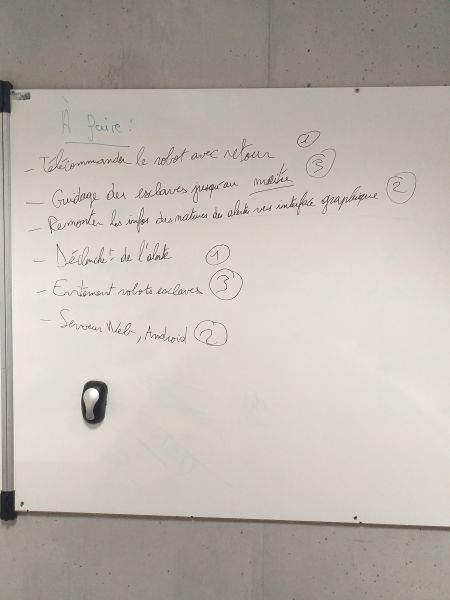 À faire :
- Télécommander le robot avec retour 1
- Guidage des esclaves jusqu'au maître 3
- Remonter les infos des natures des alertes vers interface graphique 2
- Déclenchᵗ de l'alerte 1
- Evitement robots esclaves 3
- Serveur Web, Android 2